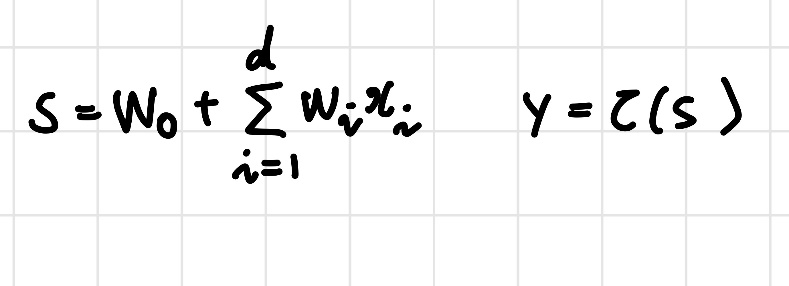 S = W₀ + ∑_{i=1}^{d} wᵢxᵢ    Y = τ(s)